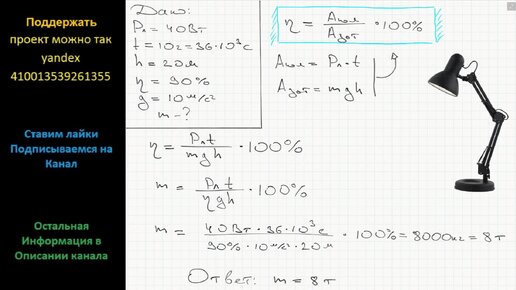 Поддержать
проект можно так
yandex
410013539261355
Ставим лайки
Подписываемся на
Канал
Остальная
Информация в
Описании канала
Дано:
Pл = 40Вт
t = 10ч = 36·10³с
h = 20м
η = 90%
g = 10 м/с²
m - ?
η = Aпол / Aзат · 100%
Aпол = Pл · t
Aзат = mgh
η = Pлt / mgh · 100%
m = Pлt / ηgh · 100%
m = 40Вт · 36·10³с / 90% · 10м/с² · 20м · 100% = 8000кг = 8т
Ответ: m = 8т